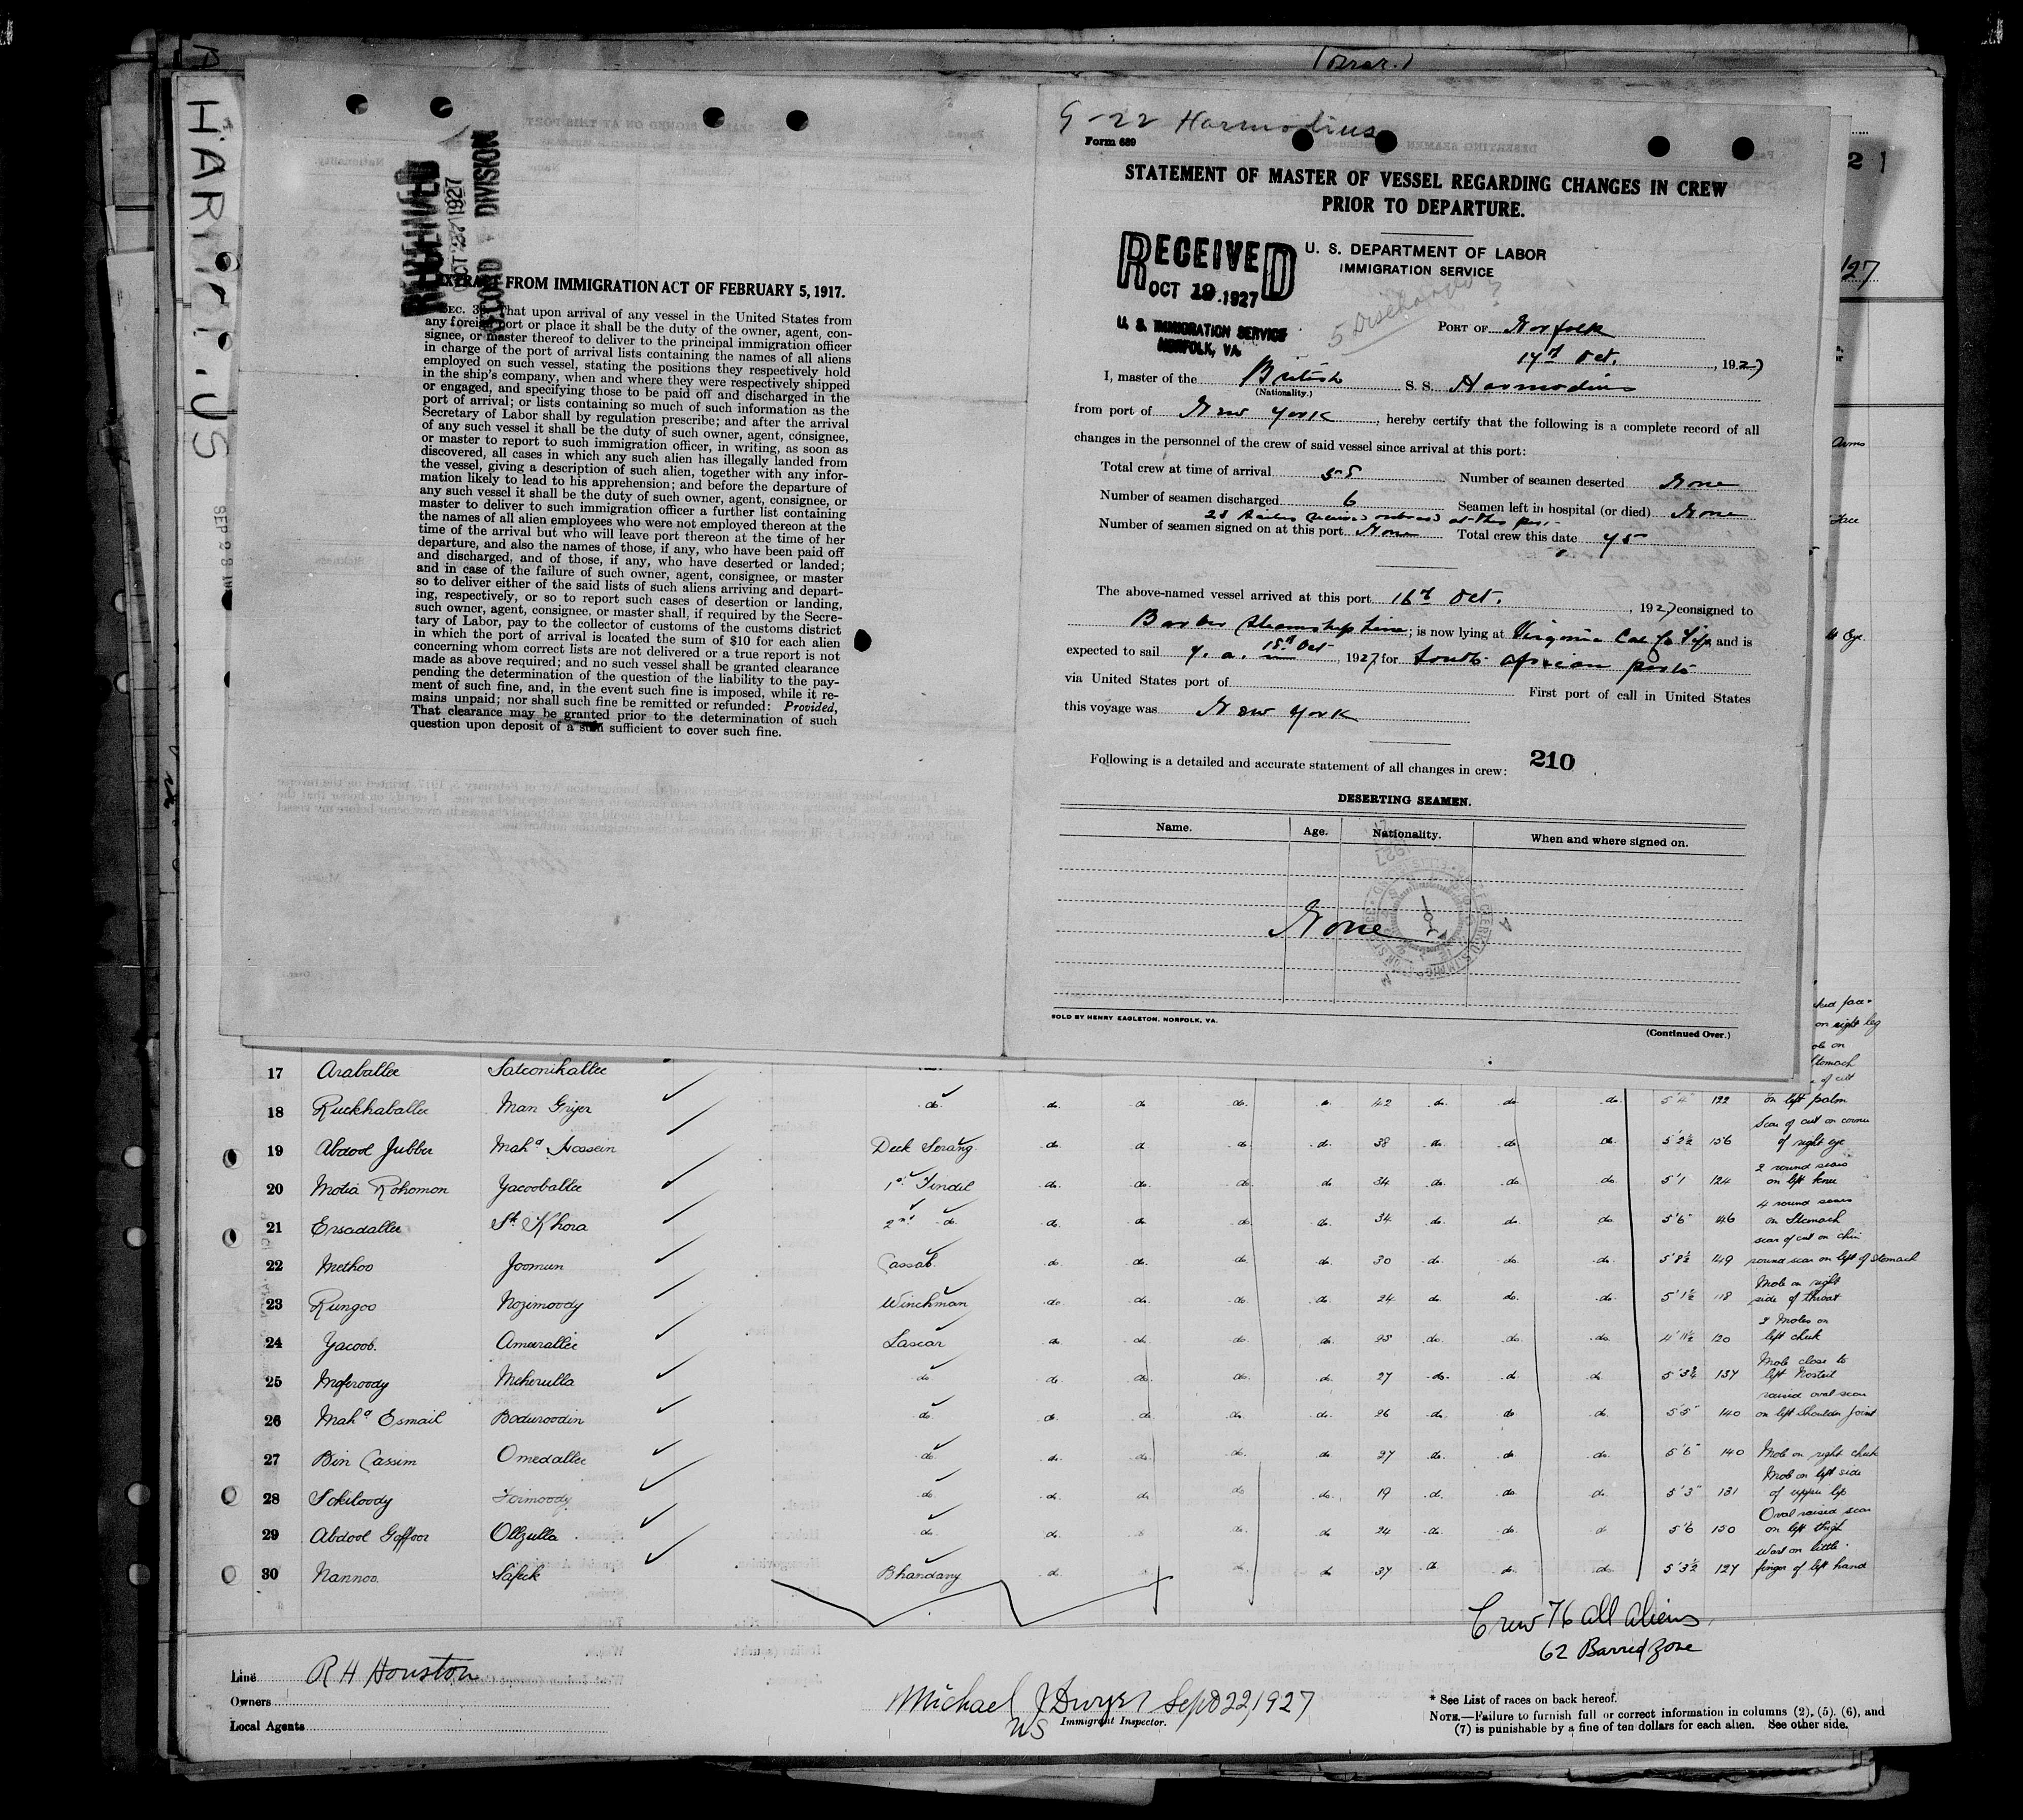 HARMODIUS
SEP 28
RECEIVED
OCT 27 1927
RECORD DIVISION
EXTRACT FROM IMMIGRATION ACT OF FEBRUARY 5, 1917.
SEC. 36. That upon arrival of any vessel in the United States from
any foreign port or place it shall be the duty of the owner, agent, con-
signee, or master thereof to deliver to the principal immigration officer
in charge of the port of arrival lists containing the names of all aliens
employed on such vessel, stating the positions they respectively hold
in the ship's company, when and where they were respectively shipped
or engaged, and specifying those to be paid off and discharged in the
port of arrival; or lists containing so much of such information as the
Secretary of Labor shall by regulation prescribe; and after the arrival
of any such vessel it shall be the duty of such owner, agent, consignee,
or master to report to such immigration officer, in writing, as soon as
discovered, all cases in which any such alien has illegally landed from
the vessel, giving a description of such alien, together with any infor-
mation likely to lead to his apprehension; and before the departure of
any such vessel it shall be the duty of such owner, agent, consignee, or
master to deliver to such immigration officer a further list containing
the names of all alien employees who were not employed thereon at the
time of the arrival but who will leave port thereon at the time of her
departure, and also the names of those, if any, who have been paid off
and discharged, and of those, if any, who have deserted or landed;
and in case of the failure of such owner, agent, consignee, or master
so to deliver either of the said lists of such aliens arriving and depart-
ing, respectively, or so to report such cases of desertion or landing,
such owner, agent, consignee, or master shall, if required by the Secre-
tary of Labor, pay to the collector of customs of the customs district
in which the port of arrival is located the sum of $10 for each alien
concerning whom correct lists are not delivered or a true report is not
made as above required; and no such vessel shall be granted clearance
pending the determination of the question of the liability to the pay-
ment of such fine, and, in the event such fine is imposed, while it re-
mains unpaid; nor shall such fine be remitted or refunded: Provided,
That clearance may be granted prior to the determination of such
question upon deposit of a sum sufficient to cover such fine.
G-22 Harmodius
Form 689
STATEMENT OF MASTER OF VESSEL REGARDING CHANGES IN CREW
PRIOR TO DEPARTURE.
U. S. DEPARTMENT OF LABOR
IMMIGRATION SERVICE
RECEIVED
OCT 19 1927
U. S. IMMIGRATION SERVICE
NORFOLK, VA.
5 Discharged ?
PORT OF Norfolk
17th Oct. , 1927
I, master of the British S. S. Harmodius
(Nationality.)
from port of New York, hereby certify that the following is a complete record of all
changes in the personnel of the crew of said vessel since arrival at this port:
Total crew at time of arrival 58 Number of seamen deserted None
Number of seamen discharged 6 Seamen left in hospital (or died) None
23 received onboard at this port
Number of seamen signed on at this port None Total crew this date 75
The above-named vessel arrived at this port 16th Oct. , 1927 consigned to
Barber Steamship Line; is now lying at Virginia and is
expected to sail 18th Oct , 1927 for South African ports
via United States port of First port of call in United States
this voyage was New York
Following is a detailed and accurate statement of all changes in crew: 210
DESERTING SEAMEN.
Name. Age. Nationality. When and where signed on.
None
SOLD BY HENRY EAGLETON, NORFOLK, VA.
(Continued Over.)
17 Araballee Satconikallee
18 Ruckhaballee Man Grijer do. do do do. do. 42 do. do. do. 5'4" 122 on left palm
19 Abdool Jubber Mahd Hossein Deck Serang do do do do. 38 do. do. do. 5'2½ 156 Scar of cut on corner of right eye
20 Motia Rohomon Yacooballee 1st Tindel do. do do. do 34 do. do do. 5'1 124 2 round scars on left knee
21 Ersadallee Sk Khora 2nd do. do. do do. do. 34 do. do. do 5'6" 146 4 round scars on Stomach
scar of cut on chin
22 Methoo Joomun Cassab. do do. do. do. 30 do. do. do. 5'8½ 149 round scar on left of stomach
23 Rungoo Nozimoody Winchman do. do. do. do. 24 do. do. do. 5'1½ 118 Mole on right side of throat
24 Yacoob. Ameerallee Lascar do do. do. do. 25 do. do. do. 4'11½ 120 2 Moles on left cheek
25 Moferoody Meherulla do do. do. do. do. 27 do. do do 5'3½ 137 Mole close to left Nostril
26 Mahd Esmail Boduroodin do. do. do do. do. 26 do. do. do. 5'5" 140 raised oval scar on left shoulder joint
27 Bin Cassim Omedallee do. do. do. do. do 27 do. do. do. 5'6" 140 Mole on right cheek
28 Sokiloody Foimoody do. do. do do do. 19 d. do. do. 5'3" 131 Mole on left side of upper lip
29 Abdool Goffoor Ollzulla do. do. do. do 24 do. do. do 5'6 150 Oval raised scar on left thigh
30 Nannoo. Safeek Bhandary do. do. do 37 do do. do 5'3½ 127 Wart on little finger of left hand
Crew 76 all aliens
62 Barred Zone
Line R H Houston
Owners
Local Agents
Michael J Dwyer Sept 22, 1927
Immigrant Inspector.
* See List of races on back hereof.
NOTE.—Failure to furnish full or correct information in columns (2), (5), (6), and
(7) is punishable by a fine of ten dollars for each alien. See other side.